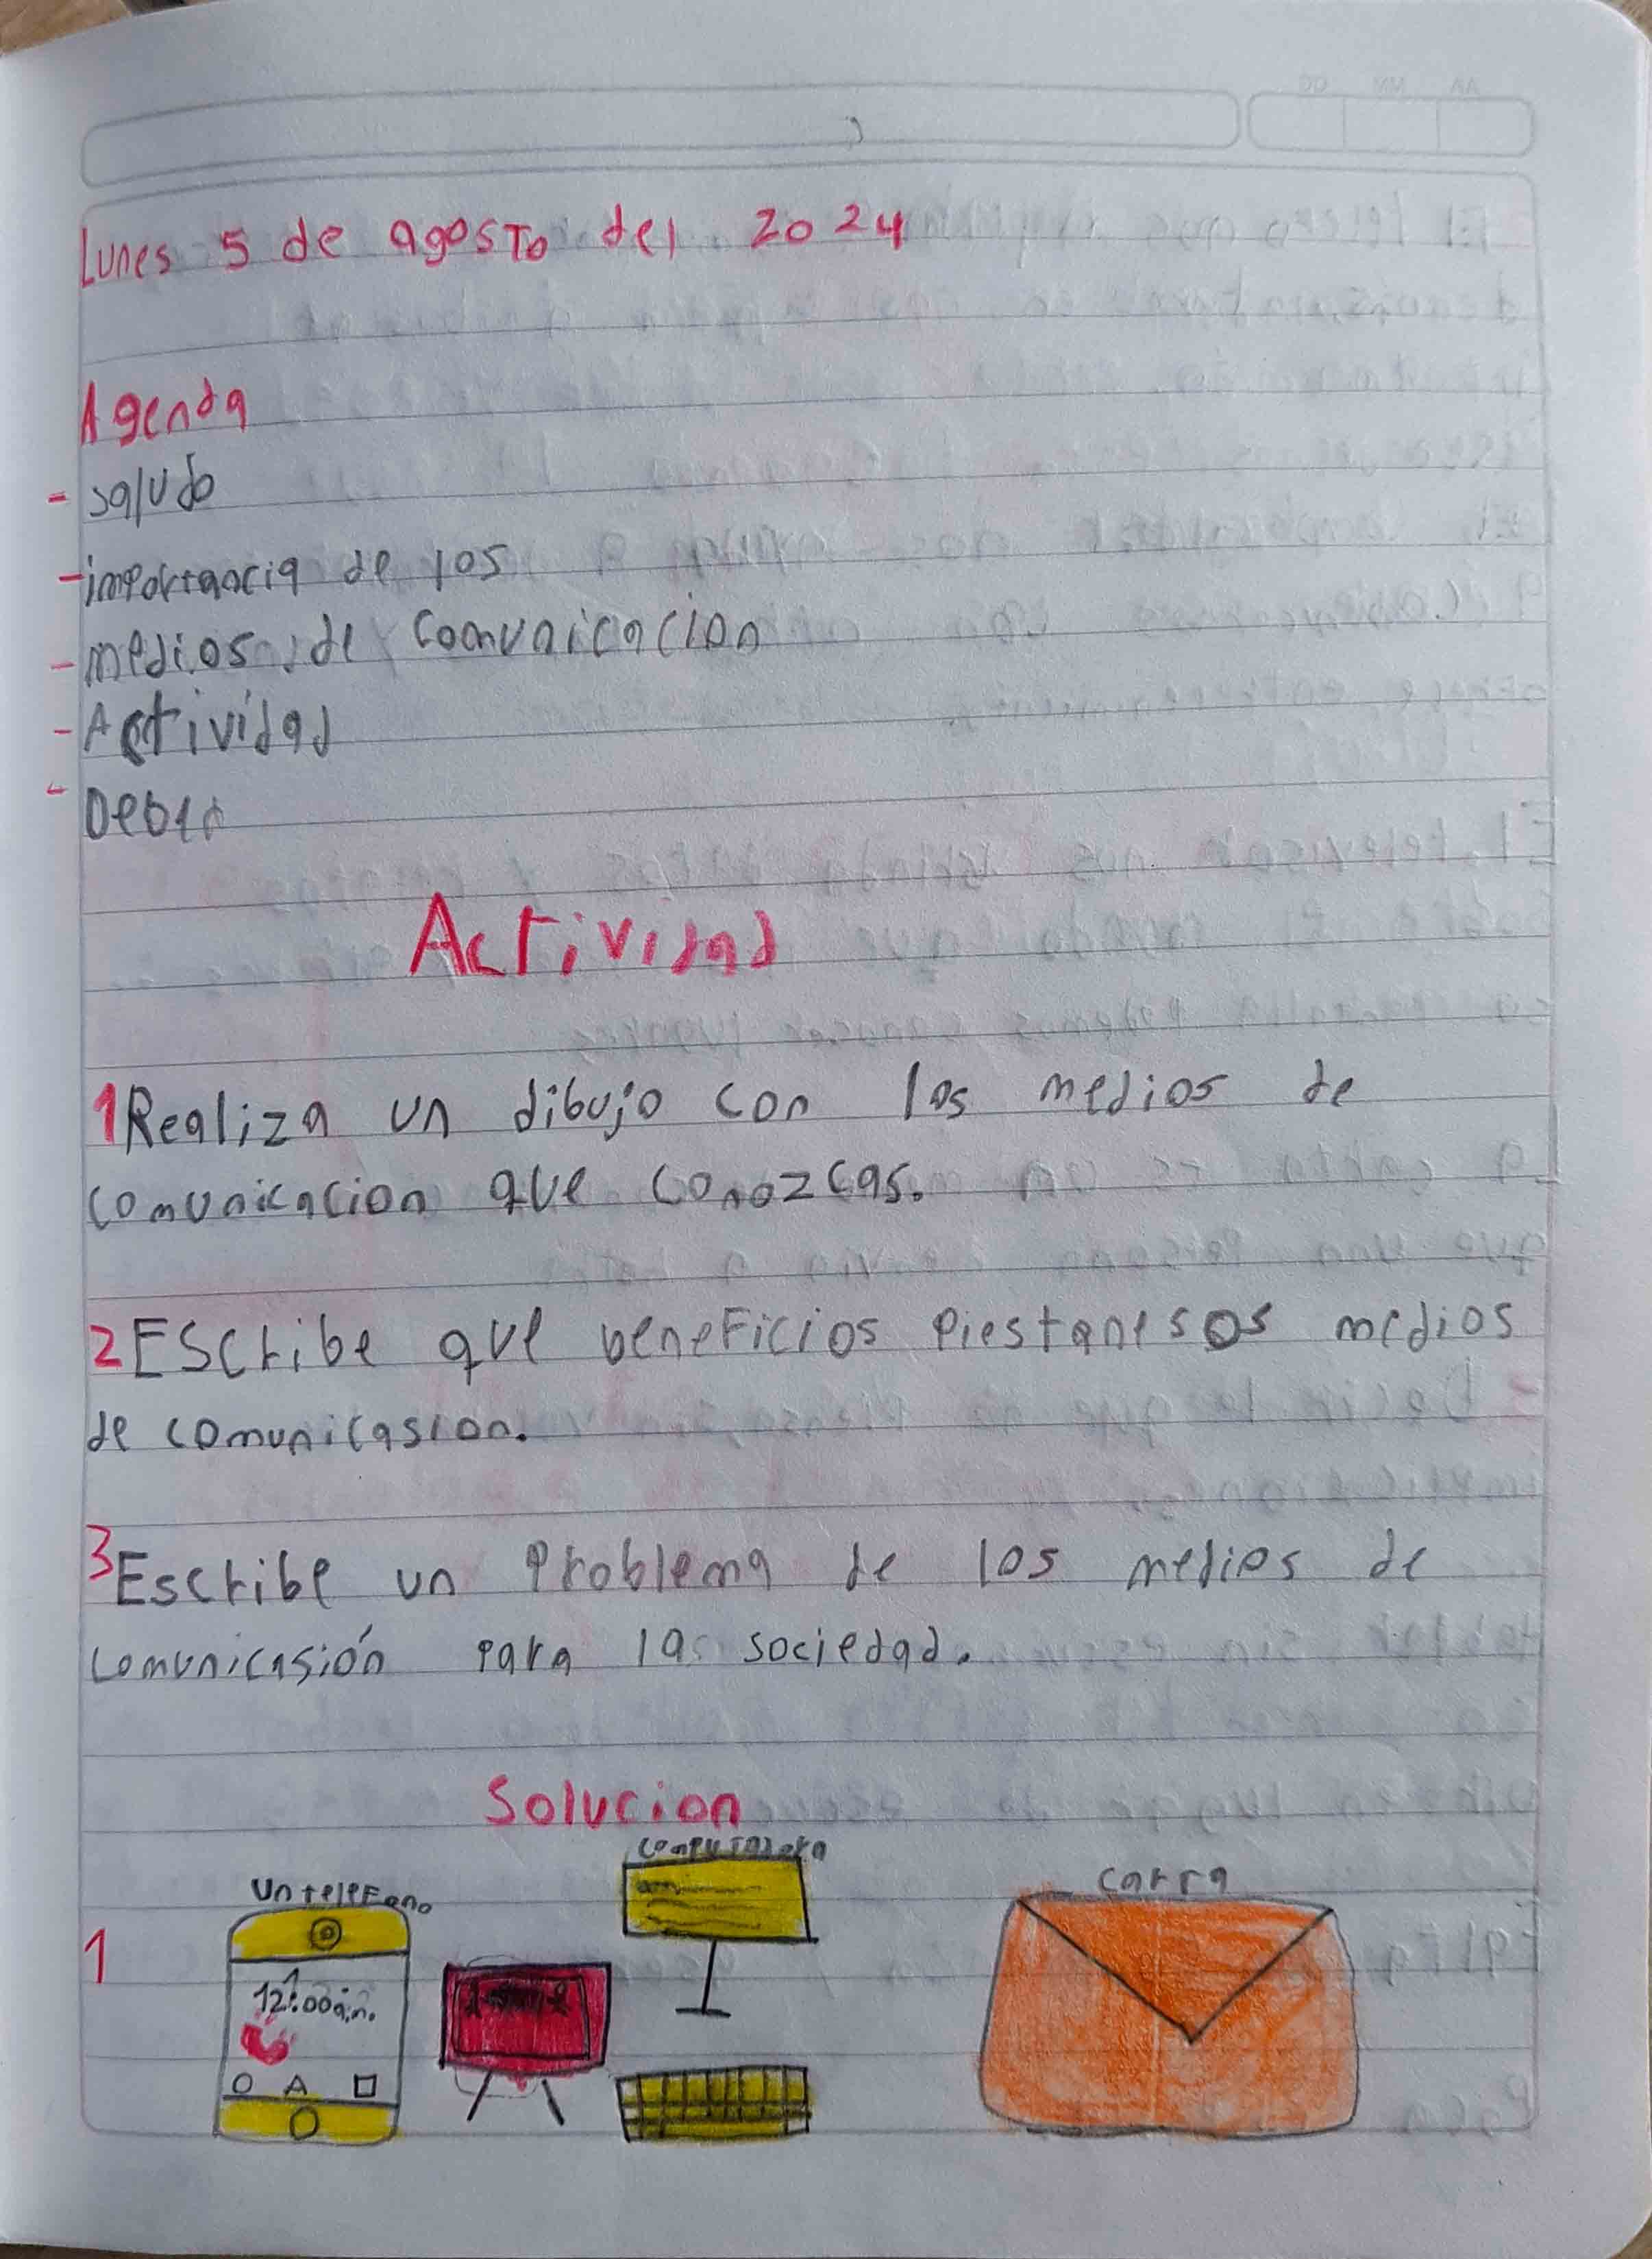 Lunes 5 de agosto del 2024
Agenda
- saludo
- importancia de los
- medios de comunicacion
- Actividad
- Deber
Actividad
1 Realiza un dibujo con los medios de
comunicacion que conozcas.
2 EScribe que beneficios prestan esos medios
de comunicasion.
3 Escribe un Problema de los medios de
comunicasión para la sociedad.
Solucion
computadora
Un teleFono
carta
1
12:00a.m.